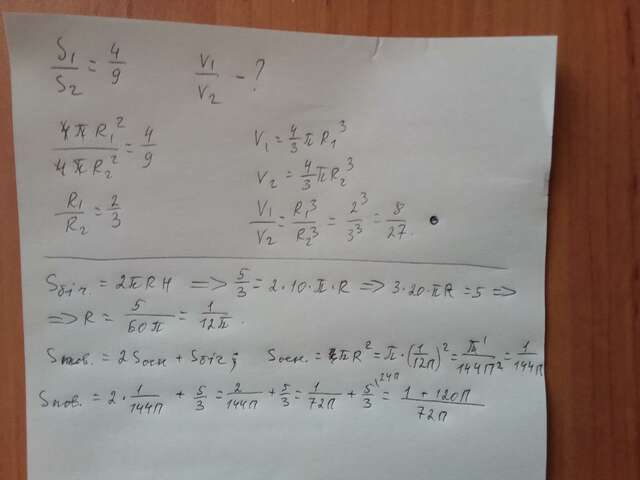 S₁/S₂ = 4/9   V₁/V₂ - ?
4πR₁²/4πR₂² = 4/9   V₁ = 4/3 πR₁³
V₂ = 4/3 πR₂³
R₁/R₂ = 2/3   V₁/V₂ = R₁³/R₂³ = 2³/3³ = 8/27.
Sбіч. = 2πRH => 5/3 = 2·10·π·R => 3·20·πR = 5 =>
=> R = 5/60π = 1/12π.
Sпов. = 2Sосн + Sбіч; Sосн. = πR² = π·(1/12π)² = π/144π² = 1/144π
Sпов. = 2·1/144π + 5/3 = 2/144π + 5/3 = 1/72π + 5/3 \24π = 1+120π/72π